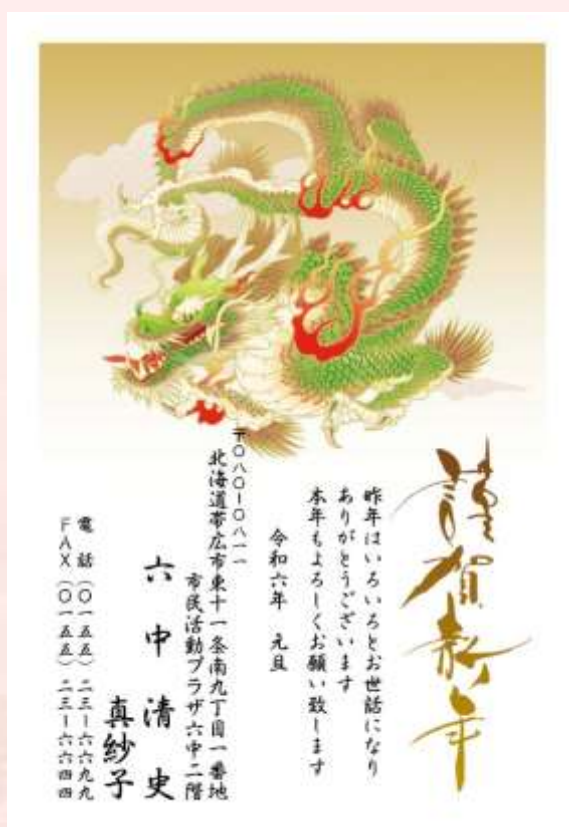 謹賀新年
昨年はいろいろとお世話になり
ありがとうございます
本年もよろしくお願い致します
令和六年 元旦
〒〇八〇ー〇八一一
北海道帯広市東十一条南九丁目一番地
市民活動プラザ六中二階
六中 清史
真紗子
電話(〇一五五)二三ー六六九九
FAX(〇一五五)二三ー六六四四